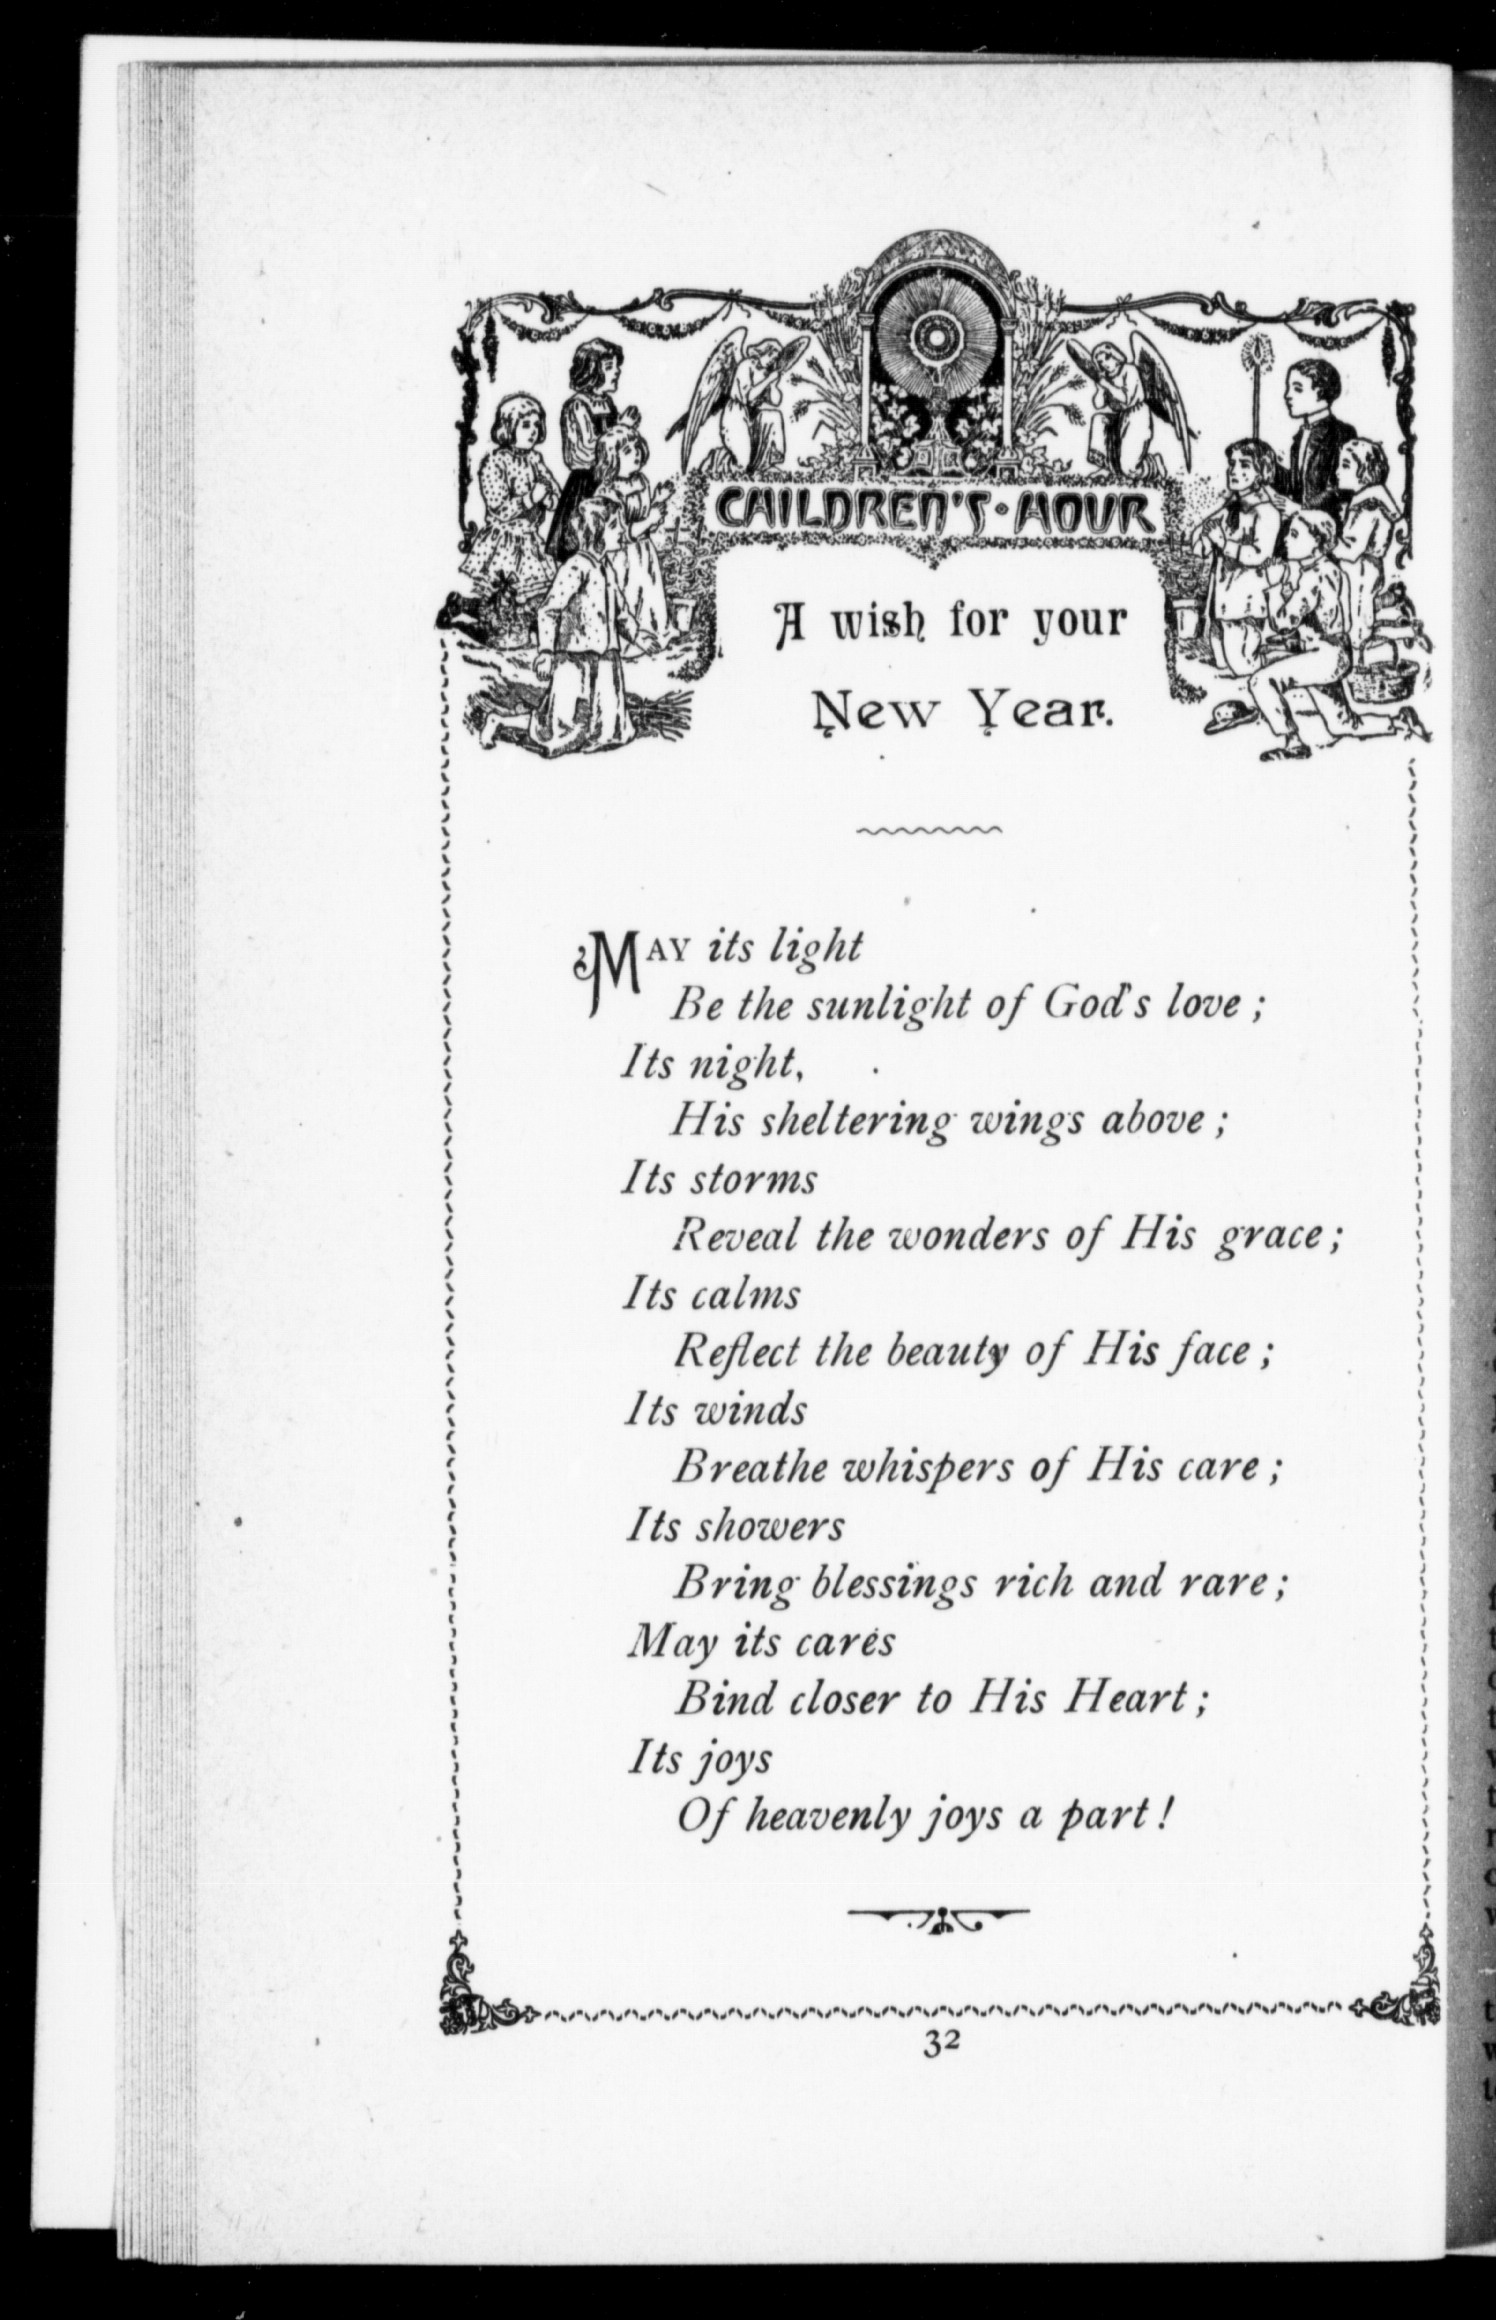 CHILDREN'S • HOUR
A wish for your
New Year.
MAY its light
Be the sunlight of God's love ;
Its night,
His sheltering wings above ;
Its storms
Reveal the wonders of His grace ;
Its calms
Reflect the beauty of His face ;
Its winds
Breathe whispers of His care ;
Its showers
Bring blessings rich and rare ;
May its cares
Bind closer to His Heart ;
Its joys
Of heavenly joys a part !
32